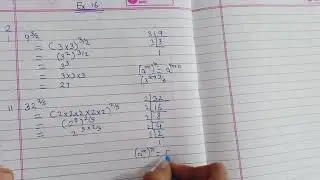 Ex 16
2
i 9^3/2
= (3×3)^3/2
= (3²)^3/2
= 3³
= 3×3×3
= 27
3 | 9
3 | 3
1
(a^m)^n = a^m×n
ii 32^2/5
= (2×2×2×2×2)^2/5
= (2⁵)^2/5
= 2^5×2/5
2 | 32
2 | 16
2 | 8
2 | 4
2 | 2
1
(a^m)^n =